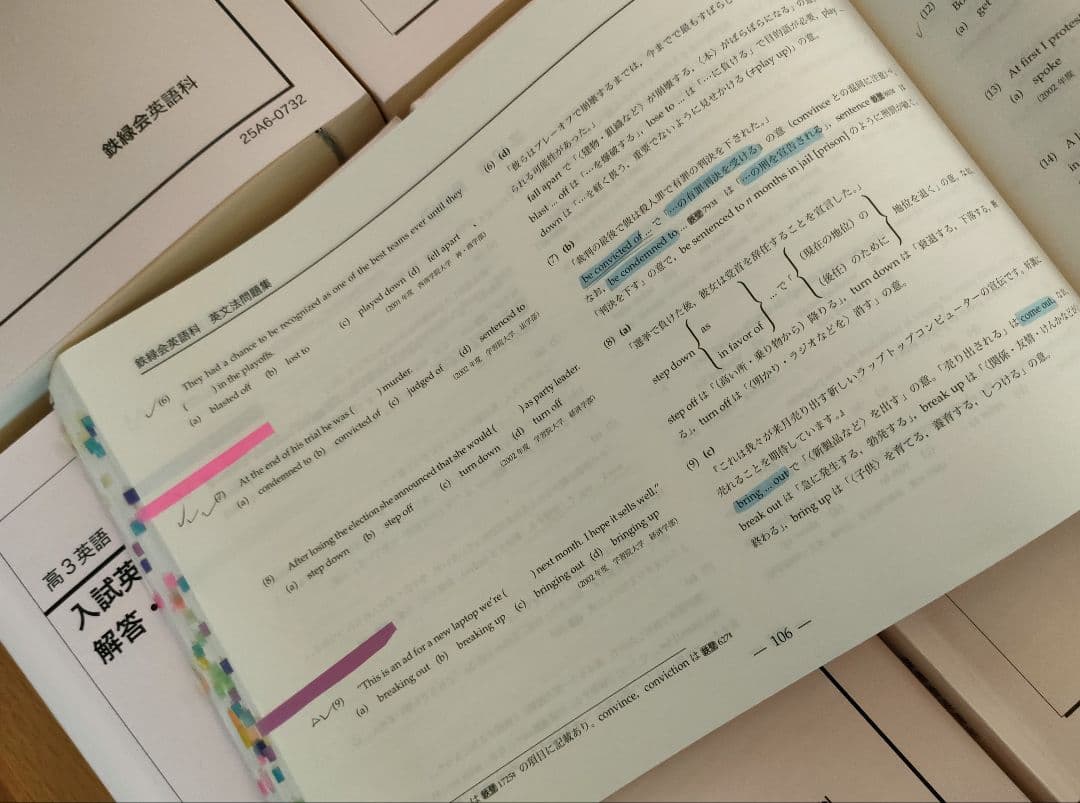 鉄緑会英語科
25A6-0732
高3英語
入試英
解答・
鉄緑会英語科 英文法問題集
(6) They had a chance to be recognized as one of the best teams ever until they
( ) in the playoffs.
(a) blasted off (b) lost to (c) played down (d) fall apart
(2001年度 西南学院大学 神・商学部)
(7) At the end of his trial he was ( ) murder.
(a) condemned to (b) convicted of (c) judged of (d) sentenced to
(2002年度 学習院大学 法学部)
(8) After losing the election she announced that she would ( ) as party leader.
(a) step down (b) step off (c) turn down (d) turn off
(2002年度 学習院大学 経済学部)
(9) "This is an ad for a new laptop we're ( ) next month. I hope it sells well."
(a) breaking out (b) breaking up (c) bringing out (d) bringing up
(2002年度 学習院大学 経済学部)
(6) (d)
「彼らはプレーオフで崩壊するまでは、今までで最もすばらし
られる可能性があった。」
fall apart で「〈建物・組織など〉が崩壊する,〈本〉がばらばらになる」の意
blast ... off は「…を爆破する」, lose to ... は「…に負ける」で目的語が必要, play
down は「…を軽く扱う, 重要でないように見せかける (≠play up)」の意。
(7) (b)
「裁判の最後で彼は殺人罪で有罪の判決を下された。」
be convicted of ... で「…の有罪判決を受ける」の意 (convince との混同に注意)。
なお, be condemned to ... は「…の刑を宣告される」, sentence は
「判決を下す」の意で, be sentenced to n months in jail [prison] のように刑罰が続く。
(8) (a)
「選挙で負けた後, 彼女は党首を辞任することを宣言した。」
step down { as / in favor of } ... で「{ (現在の地位) の / (後任) のために } 地位を退く」の意,
step off は「(高い所・乗り物から) 降りる」, turn down は「衰退する, 下落する,
る」, turn off は「〈明かり・ラジオなどを〉消す」の意。
(9) (c)
「これは我々が来月売り出す新しいラップトップコンピューターの宣伝です。
売れることを期待しています。」
bring ... out で「〈新製品など〉を出す」の意。「売り出される」は come out
break out は「急に発生する, 勃発する」, break up は「〈関係・友情・けんかなどが
終わる」, bring up は「〈子供〉を育てる, 養育する, しつける」の意。
は 1725 の項目に記載あり。convince, conviction は 627
— 106 —
(12)
(a) get
(13) At first I protes
(a) spoke
(2002年度
(14) A l
in